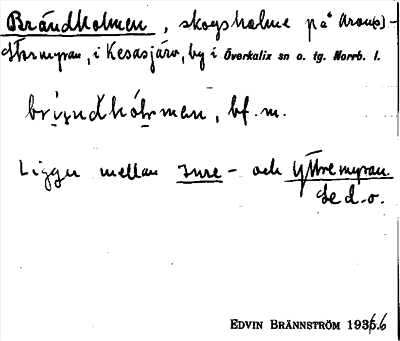 Brändholmen, skogsholme på Aron(s)-
Stormyran, i Kesasjärv, by i Överkalix sn o. tg. Norrb. l.
brı̣ṇndhólṃmen, bf. m.
Ligger mellan Inre- och Yttremyran.
Se d. o.
EDVIN BRÄNNSTRÖM 1936.6